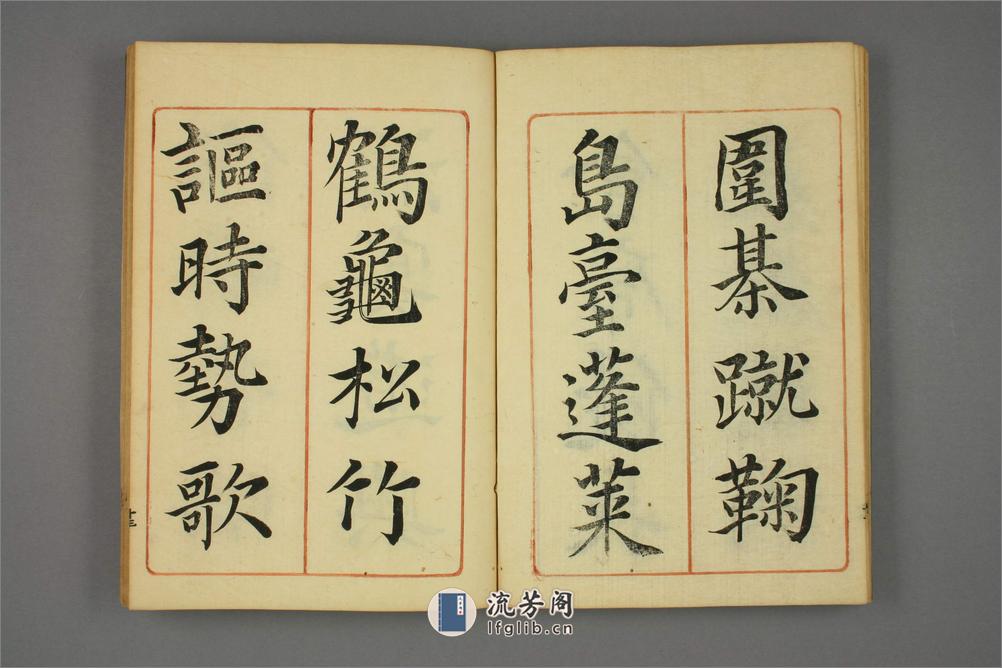 圍棊蹴鞠
島臺蓬萊
鶴龜松竹
謳時勢歌
流芳阁
lfglib.cn